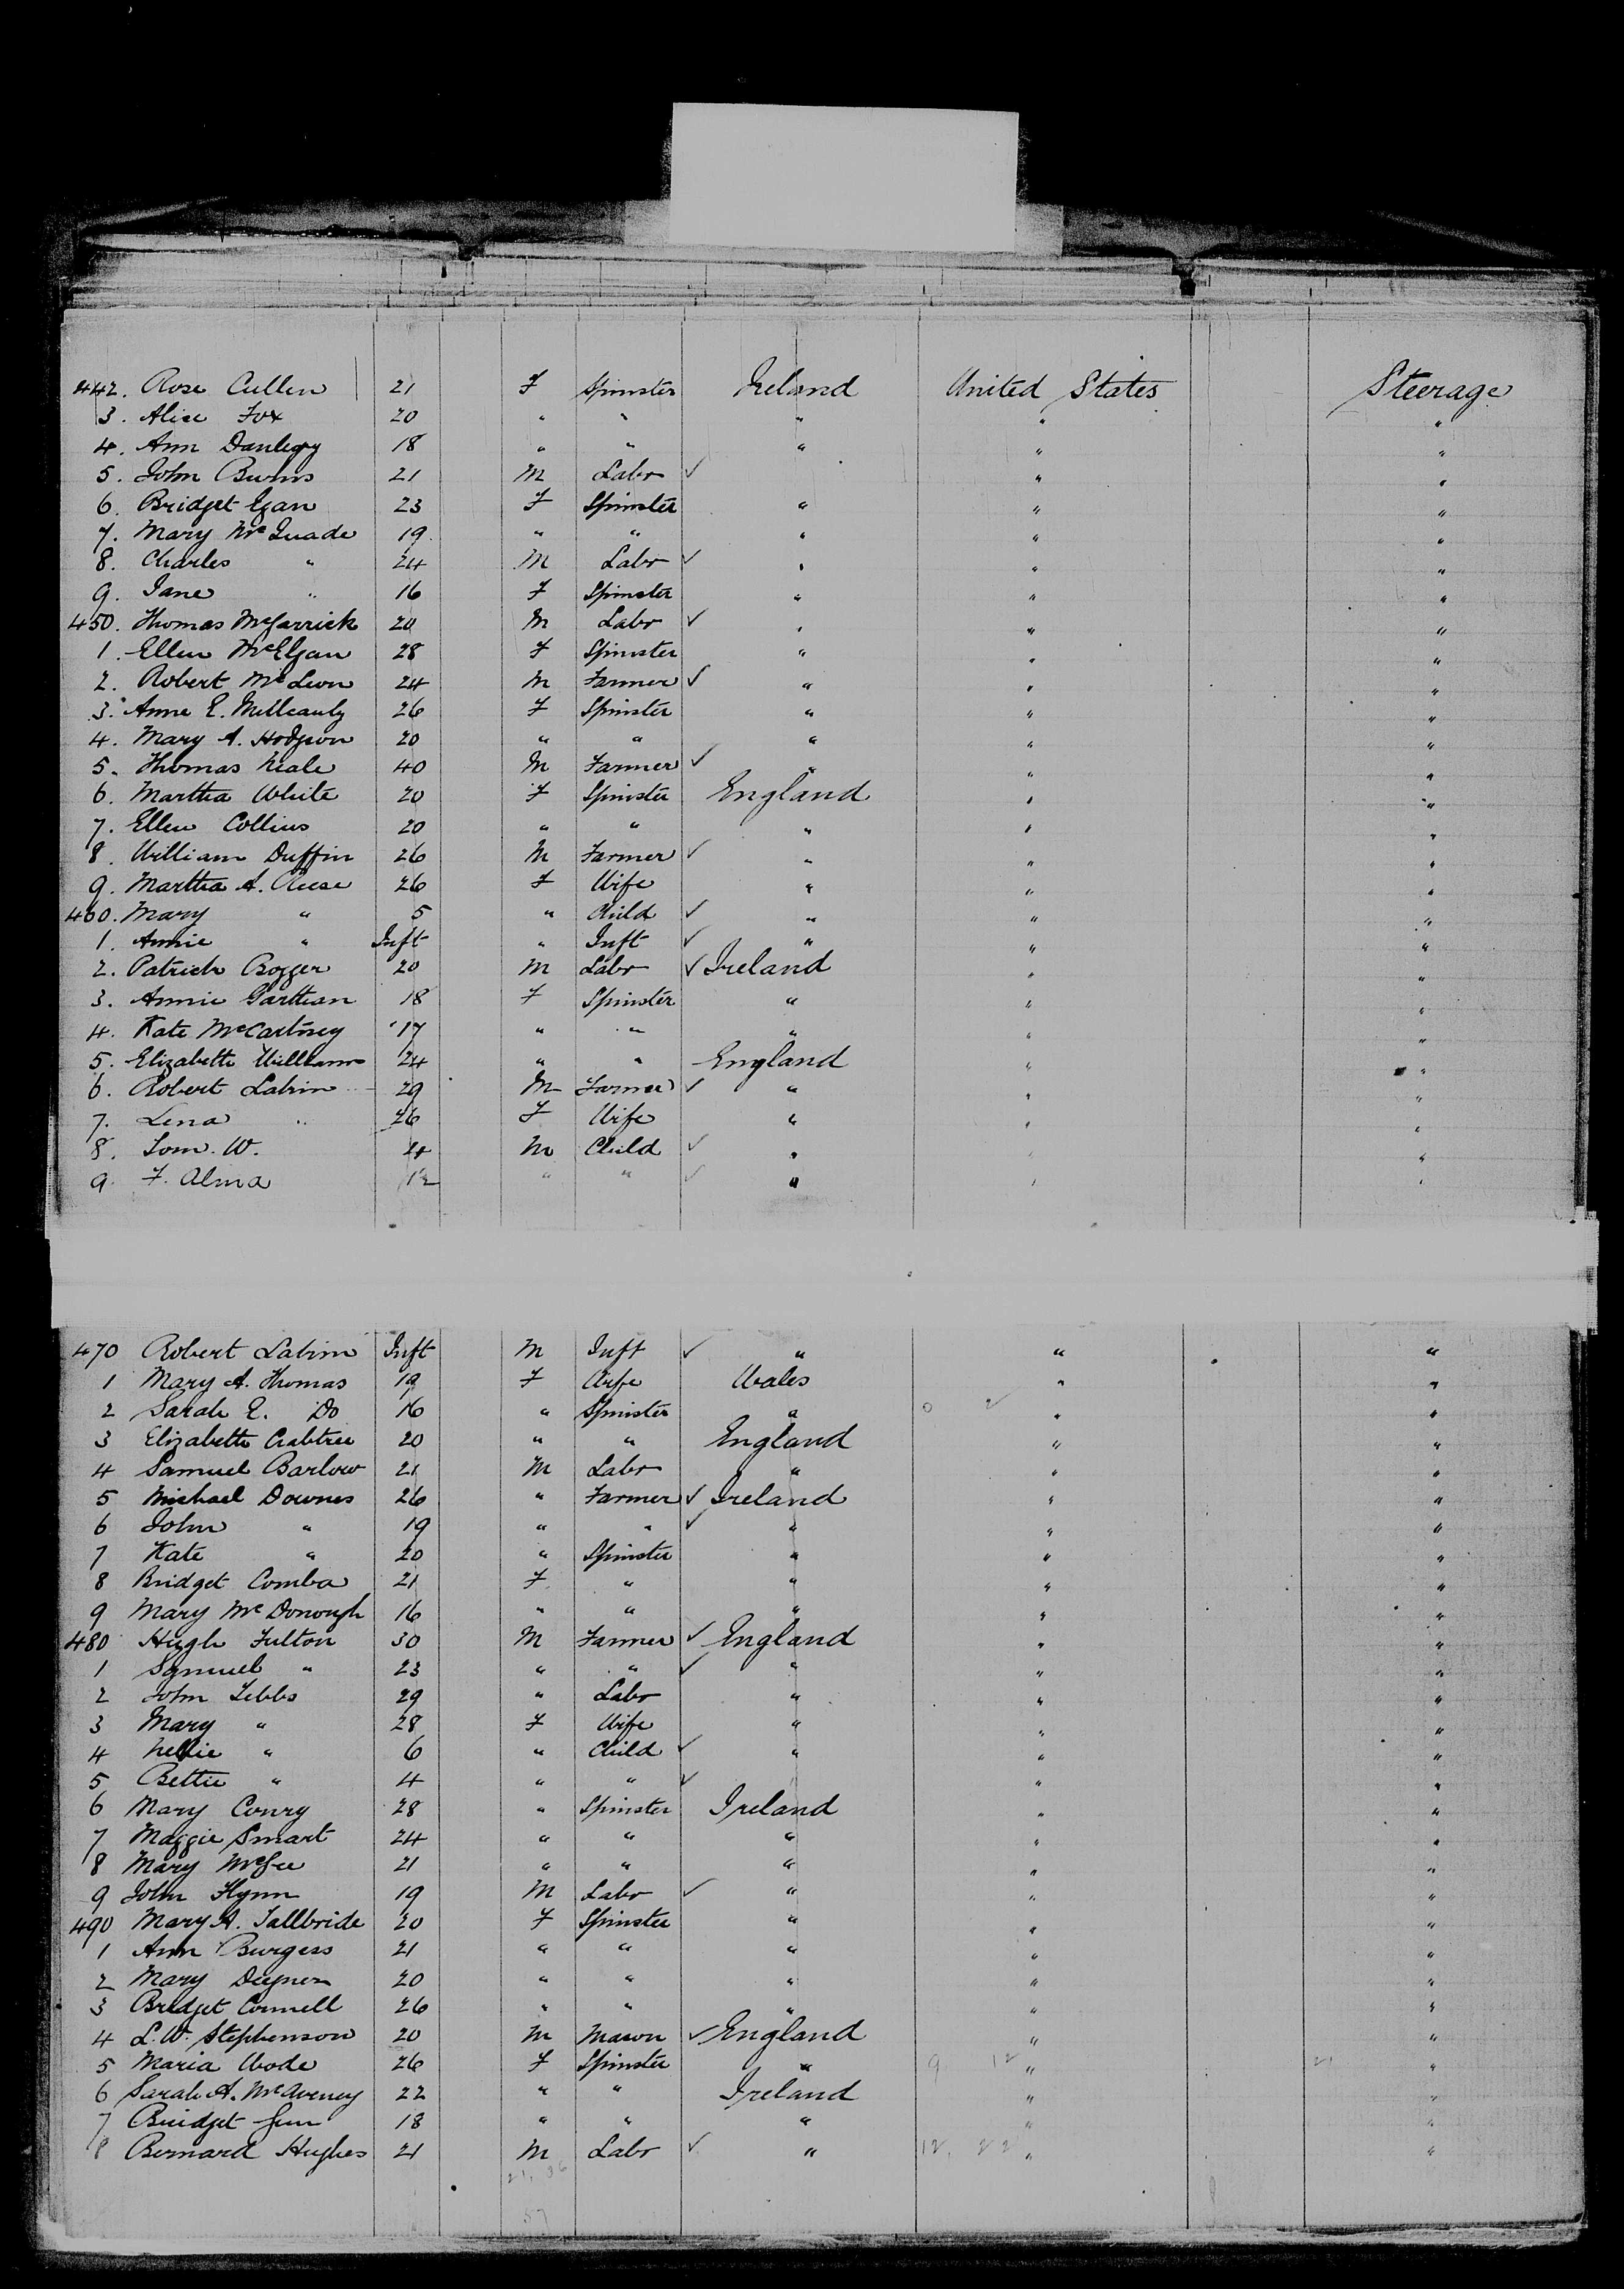 442. Rose Cullen 21 F Spinster Ireland United States Steerage
3. Alice Fox 20 " " " " "
4. Ann 18 " " " " "
5. John Burns 21 M Labr ✓ " "
6. Bridget Egan 23 F Spinster " " "
7. Mary McQuade 19 " " " " "
8. Charles " 24 M Labr ✓ " " "
9. Jane " 16 F Spinster " " "
450. Thomas McGarrick 20 M Labr ✓ " " "
1. Ellen McElgan 28 F Spinster " " "
2. Robert McLeon 24 M Farmer ✓ " " "
3. Anne E. 26 F Spinster " " "
4. Mary A. Hodgson 20 " " " " "
5. Thomas Neale 40 M Farmer ✓ " " "
6. Martha White 20 F Spinster England " "
7. Ellen Collins 20 " " " " "
8. William Duffin 26 M Farmer ✓ " " "
9. Martha A. 26 F Wife " " "
460. Mary " 5 " Child ✓ " " "
1. Annie " Inft " Inft ✓ " " "
2. Patrick Bogger 20 M Labr ✓ Ireland " "
3. Annie Garthan 18 F Spinster " " "
4. Kate McCartney 17 " " " " "
5. Elizabeth Williams 24 " " England " "
6. Robert Lahim 29 M Farmer ✓ " " "
7. Lena " 26 F Wife " " "
8. Tom. W. 4 M Child ✓ " " "
9. F. Alma " " ✓ " " "
470 Robert Lahim Inft M Inft ✓ " " "
1 Mary A. Thomas 19 F Wife Wales " "
2 Sarah E. Do 16 " Spinster " " "
3 Elizabeth Crabtree 20 " " England " "
4 Samuel Barlow 21 M Labr " " "
5 Michael Downes 26 " Farmer ✓ Ireland " "
6 John " 19 " " ✓ " " "
7 Kate " 20 " Spinster " " "
8 Bridget Comba 21 F " " " "
9 Mary McDonough 16 " " " " "
480 Hugh Fulton 30 M Farmer ✓ England " "
1 Samuel " 23 " " ✓ " " "
2 John Tebbs 29 " Labr " " "
3 Mary " 28 F Wife " " "
4 Nellie " 6 " Child ✓ " " "
5 Bettie " 4 " " ✓ " "
6 Mary Conry 28 " Spinster Ireland " "
7 Maggie Smart 24 " " " " "
8 Mary McGee 21 " " " " "
9 John Flynn 19 M Labr ✓ " " "
490 Mary A. Tallbride 20 F Spinster " " "
1 Ann Burgess 21 " " " " "
2 Mary 20 " " " " "
3 Bridget Connell 26 " " " " "
4 L. W. Stephenson 20 M Mason ✓ England " "
5 Maria Wode 26 F Spinster " 9 12 " 21 "
6 Sarah A. McAveney 22 " " Ireland " "
7 Bridget 18 " " " " "
8 Bernard Hughes 21 M Labr ✓ " 12, 22 " "
21, 36
57